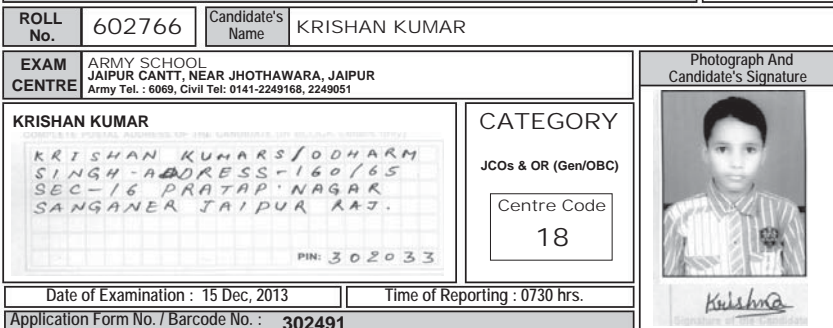 ROLL No. 602766 Candidate's Name KRISHAN KUMAR
EXAM CENTRE
ARMY SCHOOL
JAIPUR CANTT, NEAR JHOTHAWARA, JAIPUR
Army Tel. : 6069, Civil Tel: 0141-2249168, 2249051
Photograph And
Candidate's Signature
KRISHAN KUMAR
COMPLETE POSTAL ADDRESS OF THE CANDIDATE
KRISHAN KUMAR S/O DHARM
SINGH - ADDRESS - 160/65
SEC - 16 PRATAP NAGAR
SANGANER JAIPUR RAJ.
PIN: 302033
CATEGORY
JCOs & OR (Gen/OBC)
Centre Code
18
Krishna
Signature of the Candidate
Date of Examination : 15 Dec, 2013
Time of Reporting : 0730 hrs.
Application Form No. / Barcode No. : 302491